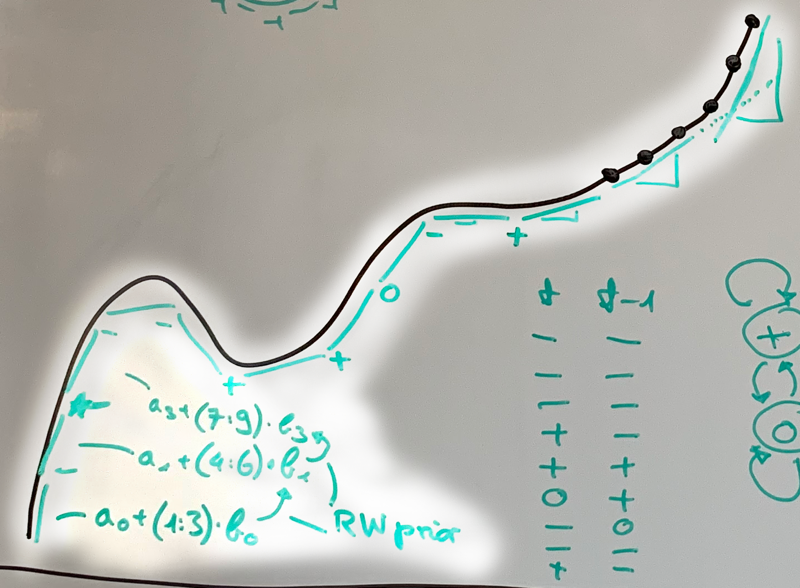 -1
- - -
+
+
o
- -
+
a₃+(7:9)·b₃
a₁+(4:6)·b₁
a₀+(1:3)·b₀
RW prior
t t-1
- -
- -
- -
+ -
+ +
o +
- o
- -
+ -
+
o